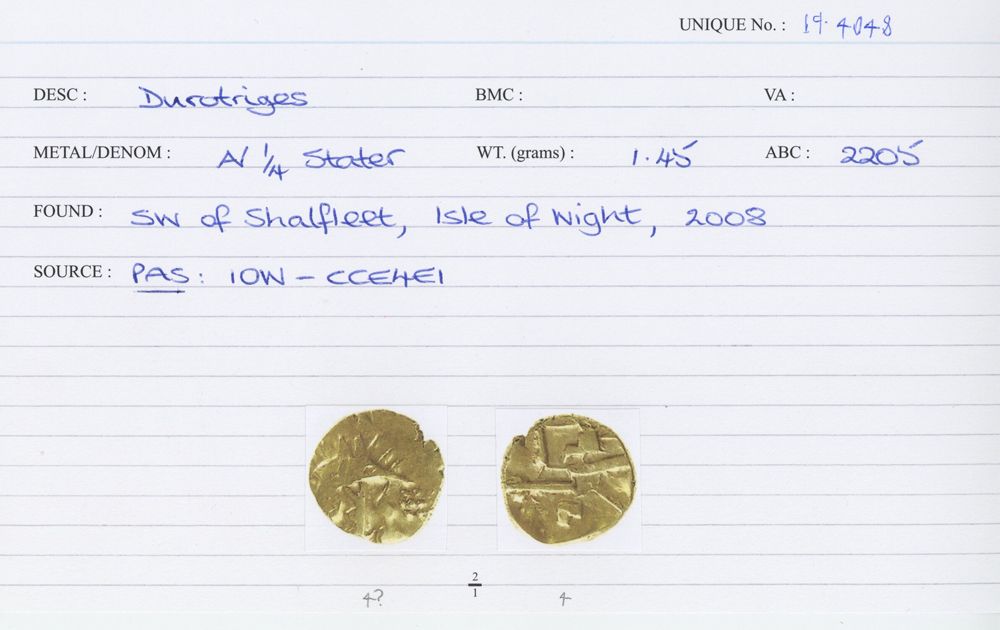 UNIQUE No. : 19.4048
DESC : Durotriges BMC : VA :
METAL/DENOM : AV 1/4 Stater WT. (grams) : 1.45 ABC : 2205
FOUND : SW of Shalfleet, Isle of Wight, 2008
SOURCE : PAS: IOW - CCE4E1
2/1
4? 4